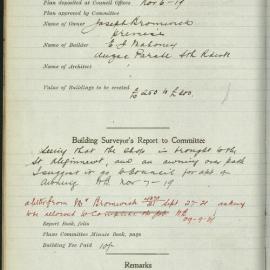 Plan deposited at Council Offices Nov 6-19
Plan approved by Committee
Name of Owner Joseph Bromwich
premises
Name of Builder E J Mahoney
Parade Sth Kens
Name of Architect
Value of Buildings to be erected
£250 to £200
Building Surveyor's Report to Committee
Seeing that the shop is brought to the
St Alignment, and an awning over path
I suggest it go to Council for app of
Awning Nov 7-19
a letter from Mr Bromwich Sept 27-21 asking
to be allowed to complete
29-9-21
Report Book, folio
Plans Committee Minute Book, page
Building Fee Paid 10/-
Remarks